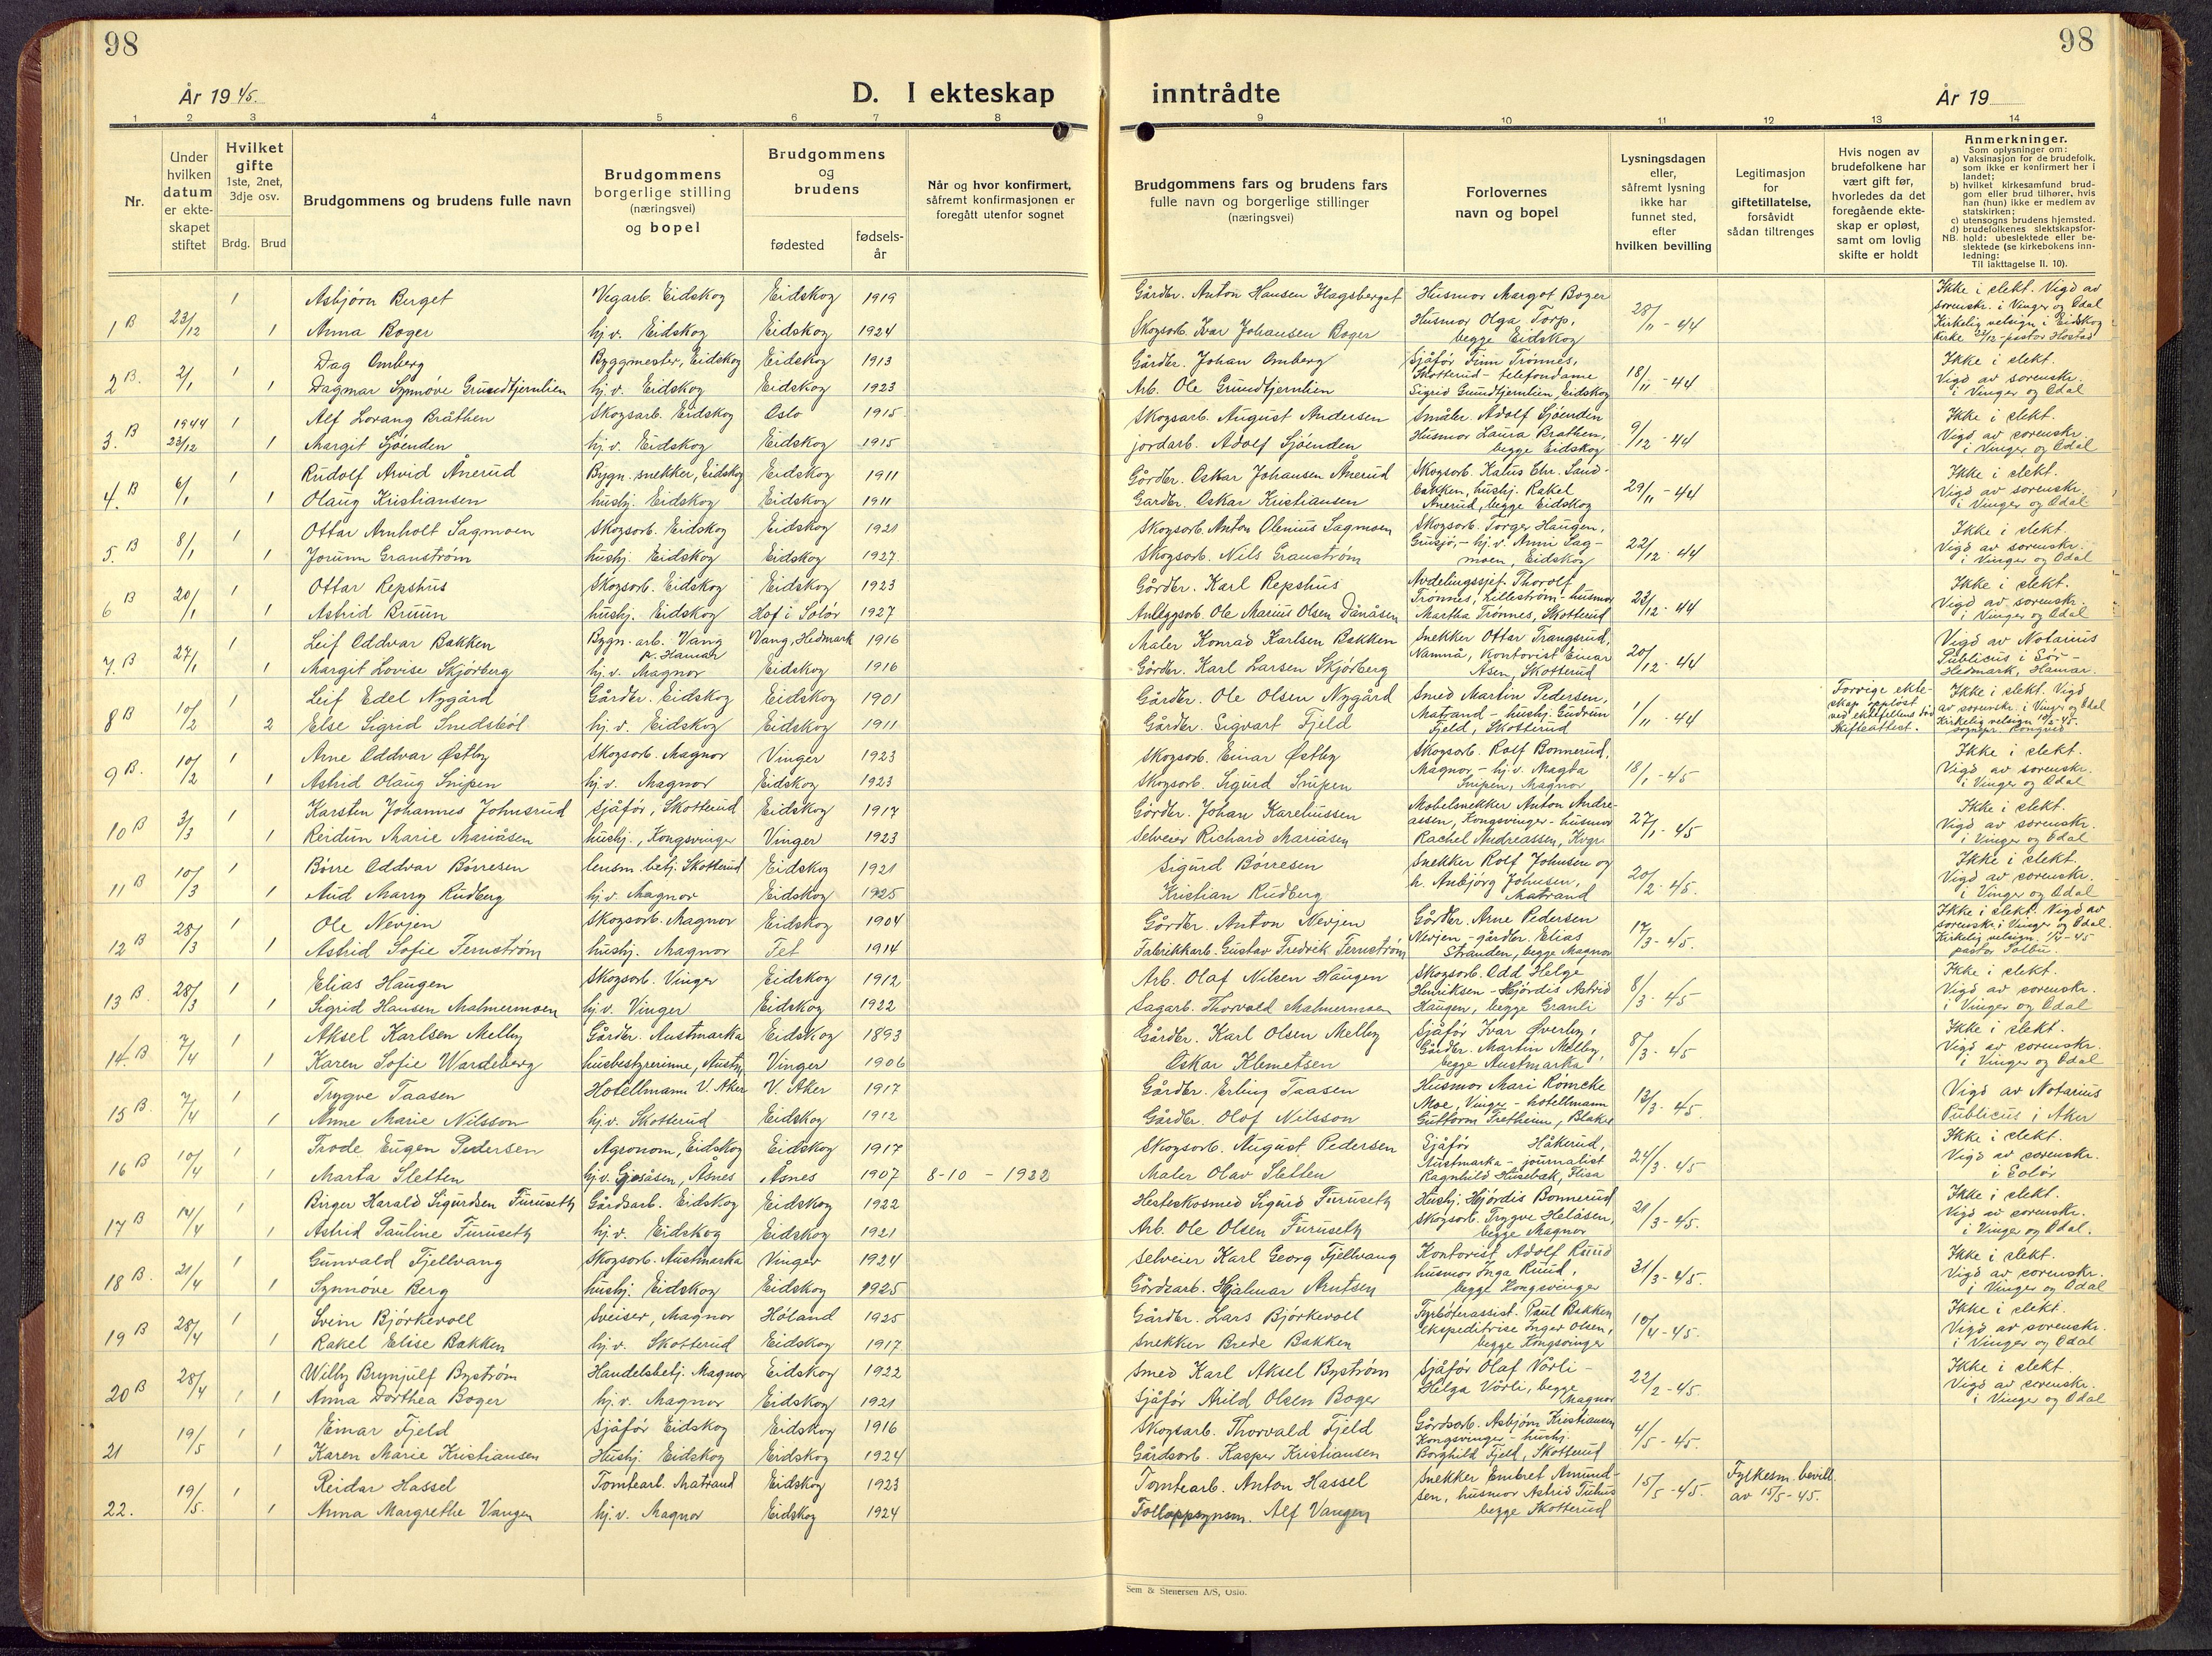 98
98
År 1945.
D. I ekteskap inntrådte
År 19
1 2 3 4 5 6 7 8 9 10 11 12 13 14
Nr.
Under hvilken datum er ekteskapet stiftet
Hvilket gifte 1ste, 2net, 3dje osv.
Brdg. Brud
Brudgommens og brudens fulle navn
Brudgommens borgerlige stilling (næringsvei) og bopel
Brudgommens og brudens
fødested
fødsels-år
Når og hvor konfirmert, såfremt konfirmasjonen er foregått utenfor sognet
Brudgommens fars og brudens fars fulle navn og borgerlige stillinger (næringsvei)
Forlovernes navn og bopel
Lysningsdagen eller, såfremt lysning ikke har funnet sted, efter hvilken bevilling
Legitimasjon for giftetillatelse, forsåvidt sådan tiltrenges
Hvis nogen av brudefolkene har vært gift før, hvorledes da det foregående ekteskap er opløst, samt om lovlig skifte er holdt
Anmerkninger.
Som oplysninger om:
a) Vaksinasjon for de brudefolk, som ikke er konfirmert her i landet;
b) hvilket kirkesamfund brudgom eller brud tilhører, hvis han (hun) ikke er medlem av statskirken;
c) utensogns brudens hjemsted.
d) brudefolkenes slektskapsforhold: ubeslektede eller beslektede (se kirkebokens innledning:
NB. Til iakttagelse II. 10).
1 B 23/12 1 Asbjørn Berget Vegarb. Eidskog Eidskog 1919 Gårdbr. Anton Hansen Husmor Margot Boger 28/11-44 Ikke i slekt. Vigd av sorenskr. i Vinger og Odal
1 Anna Boger hj.v. Eidskog Eidskog 1924 Skogsarb. Ivar Johansen Boger Husmor Olga Torp, begge Eidskog Kirkelig velsign. i Eidskog kirke 23/12 pastor Hostad
2 B. 2/1 1 Dag Omberg Byggmester, Eidskog Eidskog 1913 Gårdbr. Johan Omberg Sjåfør Finn Trønnes, Skotterud - telefondame 18/11-44 Ikke i slekt.
1 Dagmar Synnøve Grundtjernlien hj.v. Eidskog Eidskog 1923 Arb. Ole Grundtjernlien Sigrid Grundtjernlien, Eidskog Vigd av sorenskr. i Vinger og Odal
3. B 1944 23/12 1 Alf Lorang Bråthen Skogsarb. Eidskog Oslo 1915 Skogsarb. August Andersen Småbr. Adolf Sjøenden 9/12-44 Ikke i slekt.
1 Margit Sjøenden hj.v. Eidskog Eidskog 1915 jordarb. Adolf Sjøenden Husmor Laura Bråthen, begge Eidskog Vigd av sorenskr. i Vinger og Odal
4. B 6/1 1 Rudolf Arvid Ånerud Bygn. snekker, Eidskog Eidskog 1911 Gårdbr. Oskar Johansen Ånerud Skogsarb. Kalus Chr. Sandbakken, hushj. Rakel 29/11-44 Ikke i slekt.
1 Olaug Kristiansen hushj. Eidskog Eidskog 1911 Gårdbr. Oskar Kristiansen Ånerud, begge Eidskog Vigd av sorenskr. i Vinger og Odal
5. B 8/1 1 Ottar Arnholt Sagmoen Skogsarb. Eidskog Eidskog 1921 Skogsarb. Anton Olenius Sagmoen Skogsarb. Torger Haugen, 22/12-44 Ikke i slekt
1 Jorunn Granstrøm hushj. Eidskog Eidskog 1927. Skogsarb. Nils Granström hj.v. Anni Sagmoen, Eidskog Vigd av sorenskr. i Vinger og Odal
6 B 20/1 1 Ottar Repshus Skogsarb. Eidskog Eidskog 1923 Gårdbr. Karl Repshus Avdelingssjef Thorolf Trønnes, Lillestrøm - husmor 23/12-44 Ikke i slekt.
1 Astrid Bruun hushj. Eidskog Hof i Solør 1927 Anleggsarb. Ole Marius Olsen Dånåsen Martha Trønnes, Skotterud Vigd av sorenskr. i Vinger og Odal
7. B 27/1 1 Leif Oddvar Bakken Bygn. arb. Vang p. Hamar Vang, Hedmark 1916 Maler Konrad Karlsen Bakken Snekker Ottar Trangsrud, 20/12-44 Vigd av Notarius
1 Margit Lovise Skjørberg hj.v. Magnor Eidskog 1916 Gårdbr. Karl Larsen Skjørberg Namnå, Kontorist Einar Åsen, Skotterud Publicus i Sør-Hedmark, Hamar.
8 B 10/2 1 Leif Edel Nygård Gårdbr. Eidskog Eidskog 1901 Gårdbr. Ole Olsen Nygård Smed Martin Pedersen, 1/11-44 Forrige ekteskap oppløst ved ektefellens død Skifteattest. Ikke i slekt. Vigd av sorenskr. i Vinger og Odal
2 Else Sigrid Smedsbøl hj.v. Eidskog Eidskog 1911 Gårdbr. Sigvart Fjeld Matrand - hushj. Gudrun Fjeld, Skotterud Kirkelig velsign. 10/2-45. sognepr.
9 B. 10/2 1 Arne Oddvar Østby Skogsarb. Magnor Vinger 1923 Skogsarb. Einar Østby Skogsarb. Rolf Bonnerud, 18/1-45 Ikke i slekt.
1 Astrid Olaug Snipen hj.v. Magnor Eidskog 1923 Skogsarb. Sigurd Snipen Magnor - hj.v. Magda Snipen, Magnor Vigd av sorenskr. i Vinger og Odal
10 B 3/3 1 Karsten Johannes Johnsrud sjåfør, Skotterud Eidskog 1917 Gårdbr. Johan Karehussen Møbelsnekker Anton Andreassen, Kongsvinger - husmor 27/1-45 Ikke i slekt.
1 Reidun Marie Mariåsen hushj., Kongsvinger Vinger 1923 Selveier Richard Mariåsen Rachel Andreassen, Kvgr. Vigd av sorenskr. i Vinger og Odal
11 B 10/3 1 Børre Oddvar Børresen lensm. betj. Skotterud Eidskog 1921 Sigurd Børresen Snekker Rolf Johnsen og 20/2-45. Ikke i slekt.
1 Aud Marry Rudberg hj.v. Magnor Eidskog 1925 Kristian Rudberg h. Anbjørg Johnsen, Matrand Vigd av sorenskr. i Vinger og Odal
12 B 28/3 1 Ole Nevjen Skogsarb. Magnor Eidskog 1904 Gårdbr. Anton Nevjen Gårdbr. Arne Pedersen 17/3-45. Ikke i slekt. Vigd av sorenskr. i Vinger og Odal.
1 Astrid Sofie Fernstrøm hushj. Magnor Fet 1914 Fabrikkarb. Gustav Fredrik Fernstrøm Nevjen - gårdbr. Elias Stranden, begge Magnor Kirkelig velsign. 1/4-45 pastor Solbu.
13 B. 28/3 1 Elias Haugen Skogsarb. Vinger Eidskog 1912 Arb. Olaf Nilsen Haugen Skogsarb. Odd Helge 8/3-45 Ikke i slekt.
1 Sigrid Hansen Malmermoen hj.v. Vinger Eidskog 1922 Sagarb. Thorvald Malmermoen Henriksen - Hjördis Astrid Haugen, begge Granli Vigd av sorenskr. i Vinger og Odal
14. B 7/4 1 Aksel Karlsen Melby Gårdbr. Austmarka Eidskog 1893 Gårdbr. Karl Olsen Melby Sjåfør Ivar Øverby, 8/3-45 Ikke i slekt.
1 Karen Sofie Wardeberg husbestyrerinne, Austm. Vinger 1906 Oskar Klemetsen Gårdbr. Martin Melby, begge Austmarka Vigd av sorenskr. i Vinger og Odal
15 B. 7/4 1 Trygve Taasen Hotellmann V. Aker V. Aker 1917 Gårdbr. Erling Taasen Husmor Mari Rømcke 13/3-45. Vigd av Notarius
1 Anne Marie Nilsson hj.v. Skotterud Eidskog 1912 Gårdbr. Olof Nilsson Moe, Vinger - hotellmann Guttorm Tretheim, Blaker Publicus i Aker
16 B 10/4 1 Frode Eugen Pedersen Agronom, Eidskog Eidskog 1917 Skogsarb. August Pedersen Sjåfør Håkerud, 24/3-45 Ikke i slekt.
1 Marta Sletten hj.v. Gjesåsen, Åsnes Åsnes 1907 8-10 - 1922 Maler Olav Sletten Austmarka - journalist Ragnhild Husebak, Flisa Vigd av sorenskr. i Solør
17 B 14/4 1 Birger Harald Sigurdsen Furuseth Gårdsarb. Eidskog Eidskog 1922 Hesteskosmed Sigurd Furuseth Hushj. Hjördis Bonnerud 21/3-45. Ikke i slekt.
1 Astrid Pauline Furuseth hj.v. Eidskog Eidskog 1921 Arb. Ole Olsen Furuseth Skogsarb. Trygve Helåsen, begge Magnor Vigd av sorenskr. i Vinger og Odal.
18 B. 21/4 1 Gunvald Fjellvang Skogsarb. Austmarka Vinger 1924 Selveier Karl Georg Fjellvang Kontorist Adolf Ruud 31/3-45. Ikke i slekt.
1 Synnøve Berg hushj. Eidskog Eidskog 1925 Gårdsarb. Hjalmar Arntsen husmor Inga Ruud, begge Kongsvinger Vigd av sorenskr. i Vinger og Odal
19 B 28/4 1 Svein Bjørkevoll Sveiser, Magnor Høland 1925 Gårdbr. Lars Bjørkevoll Fyrbøterassist. Paul Bakken 10/4-45. Ikke i slekt.
1 Rakel Elise Bakken hj.v. Skotterud Eidskog 1917. Snekker Brede Bakken ekspeditrise Inger Olsen, begge Kongsvinger Vigd av sorenskr. i Vinger og Odal
20 B 28/4 Willy Brynjulf Bystrøm Handelsbetj. Magnor Eidskog 1922 Smed Karl Aksel Bystrøm Sjåfør Olaf Vårli - 22/2-45. Ikke i slekt.
1 1 Anna Dorthea Boger hj.v. Magnor Eidskog 1921 Sjåfør Arild Olsen Boger Helga Vårli, begge Magnor Vigd av sorenskr. i Vinger og Odal
21 19/5 1 Einar Fjeld Sjåfør Eidskog Eidskog 1916 Skogsarb. Thorvald Fjeld Gårdsarb. Asbjørn Kristiansen 4/5-45.
1 Karen Marie Kristiansen Hushj. Eidskog Eidskog 1924 Gårdsarb. Kasper Kristiansen Kongsvinger - hushj. Borghild Fjeld, Skotterud
22. 19/5. 1 Reidar Hassel Tomtearb. Matrand Eidskog 1923 Tomtearb. Anton Hassel Snekker Embret Amundsen, husmor Astrid 15/5-45. Fylkesm. bevill. av 15/5-45.
1 Anna Margrethe Vangen hj.v. Magnor Eidskog 1924 Tolloppsynsm. Alf Vangen begge Skotterud
Sem & Stenersen A/S, Oslo.